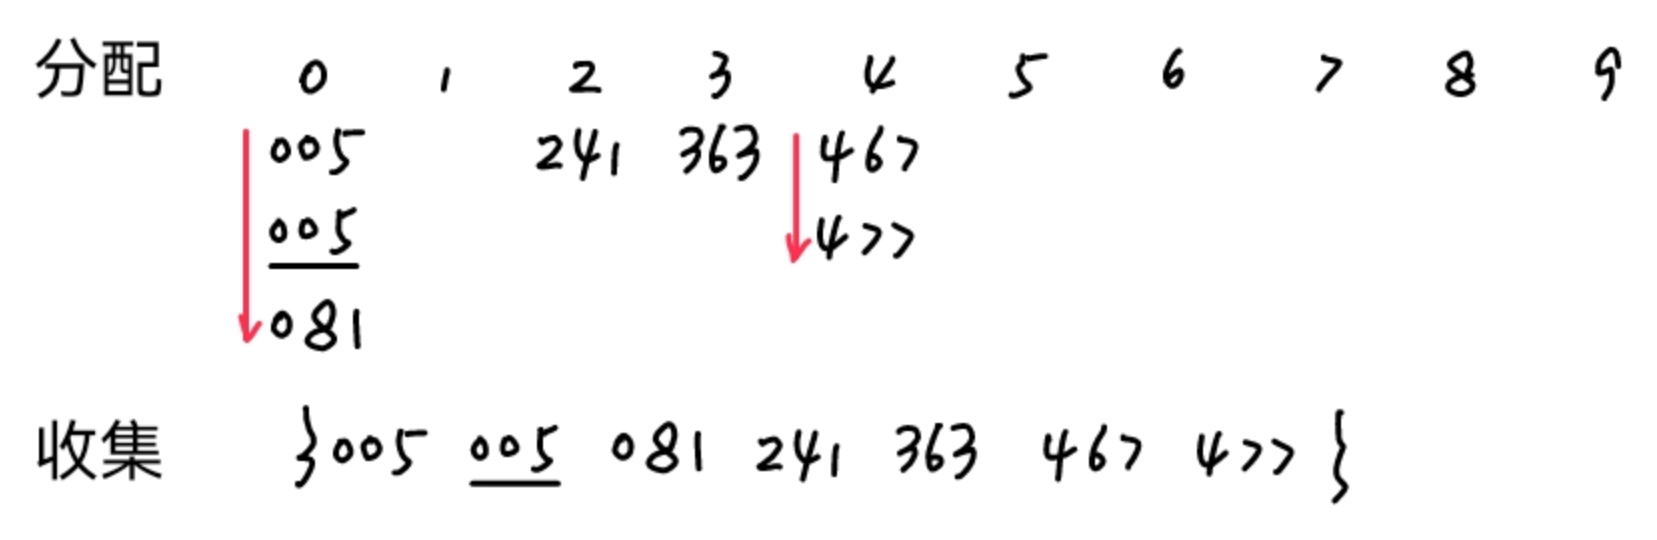 分配 0 1 2 3 4 5 6 7 8 9
005 241 363 467
005 477
081
收集 }005 005 081 241 363 467 477}